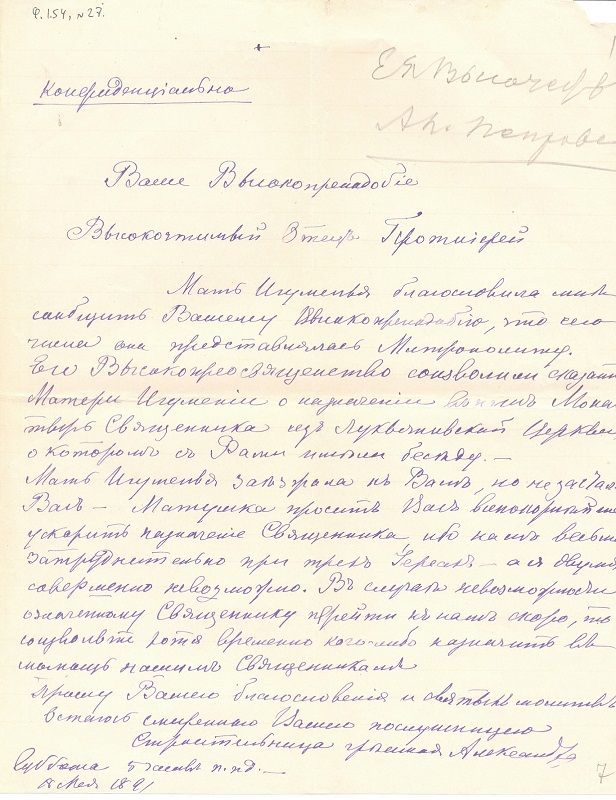 Ф. 154, № 27.
Конфиденціально
Ея Высочеств
Ап. Петрово
Ваше Высокопреподобіе
Высокочтимый Отецъ Протоіерей
Мать Игуменья благословила мнѣ
сообщить Вашему Высокопреподобію, что сего
числа она представлялась Митрополиту.
Его Высокопреосвященство соизволили сказать
Матери Игуменіи о назначеніи Мона
тырь Священника изъ Церкви
о которомъ съ Вами имѣли бесѣду. —
Мать Игуменья заѣзжала къ Вамъ, но не застала
Васъ — Матушка проситъ Васъ
ускорить назначеніе Священника ибо намъ весьма
затруднительно при трехъ Іереяхъ — а съ двумя
совершенно невозможно. Въ случаѣ невозможности
означенному Священнику перейти къ намъ скоро, то
соизвольте хотя временно кого-либо назначить въ
помощь нашимъ Священникамъ
Прошу Вашего благословенія и святыхъ молитвъ
Остаюсь смиренною Вашею послушницею
Строительница грѣшная Александра
Суббота 5 часовъ п. пд. —
Мая 189
7